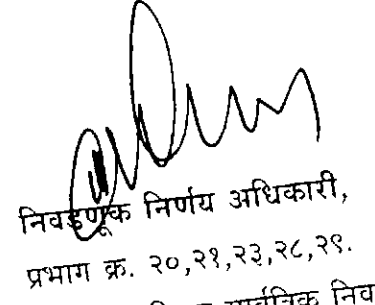 निवडणूक निर्णय अधिकारी,
प्रभाग क्र. २०,२१,२३,२८,२९.
सार्वत्रिक